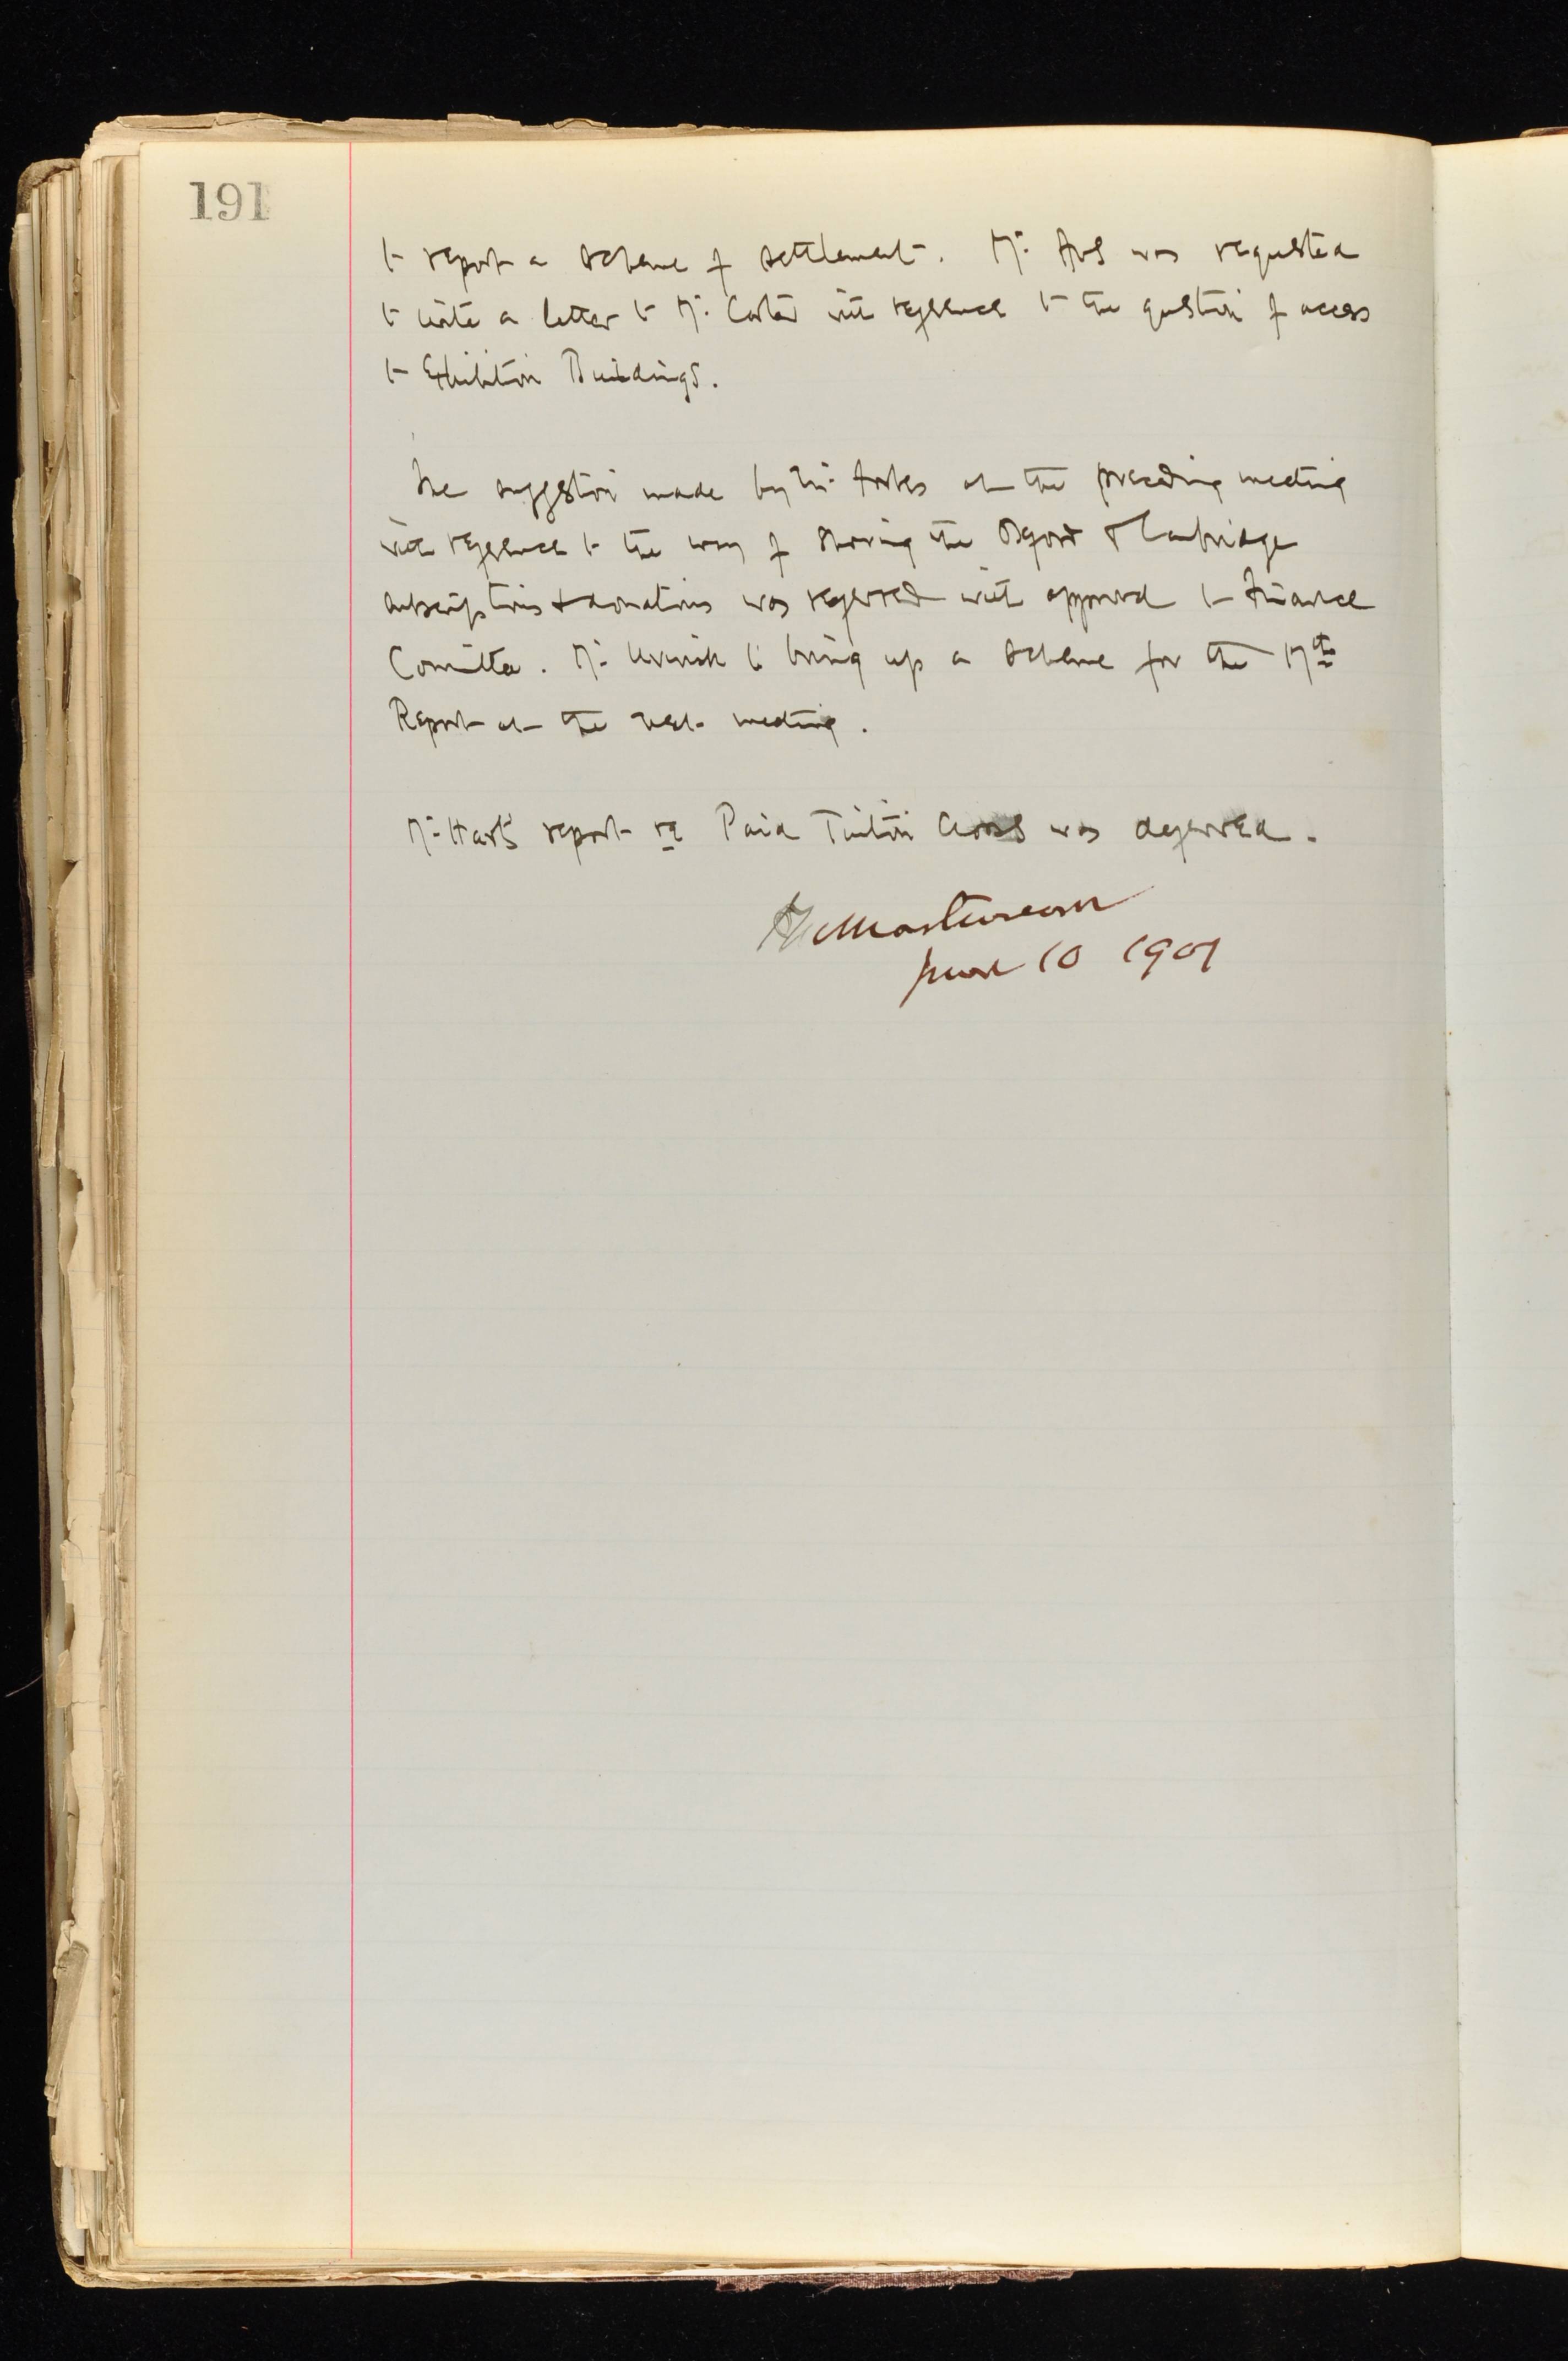 191
to report a scheme of settlement. Mr. Aves was requested
to write a letter to Mr. with reference to the question of access
to Exhibition Buildings.
The suggestion made by Mr. at the preceding meeting
with reference to the way of showing the Oxford & Cambridge
subscriptions & donations was referred with approval to Finance
Committee. Mr. Urwick to bring up a scheme for the 17th
Report at the next meeting.
Mr. Hart's report re Paid Tuition Classes was deferred.
June 10 1901